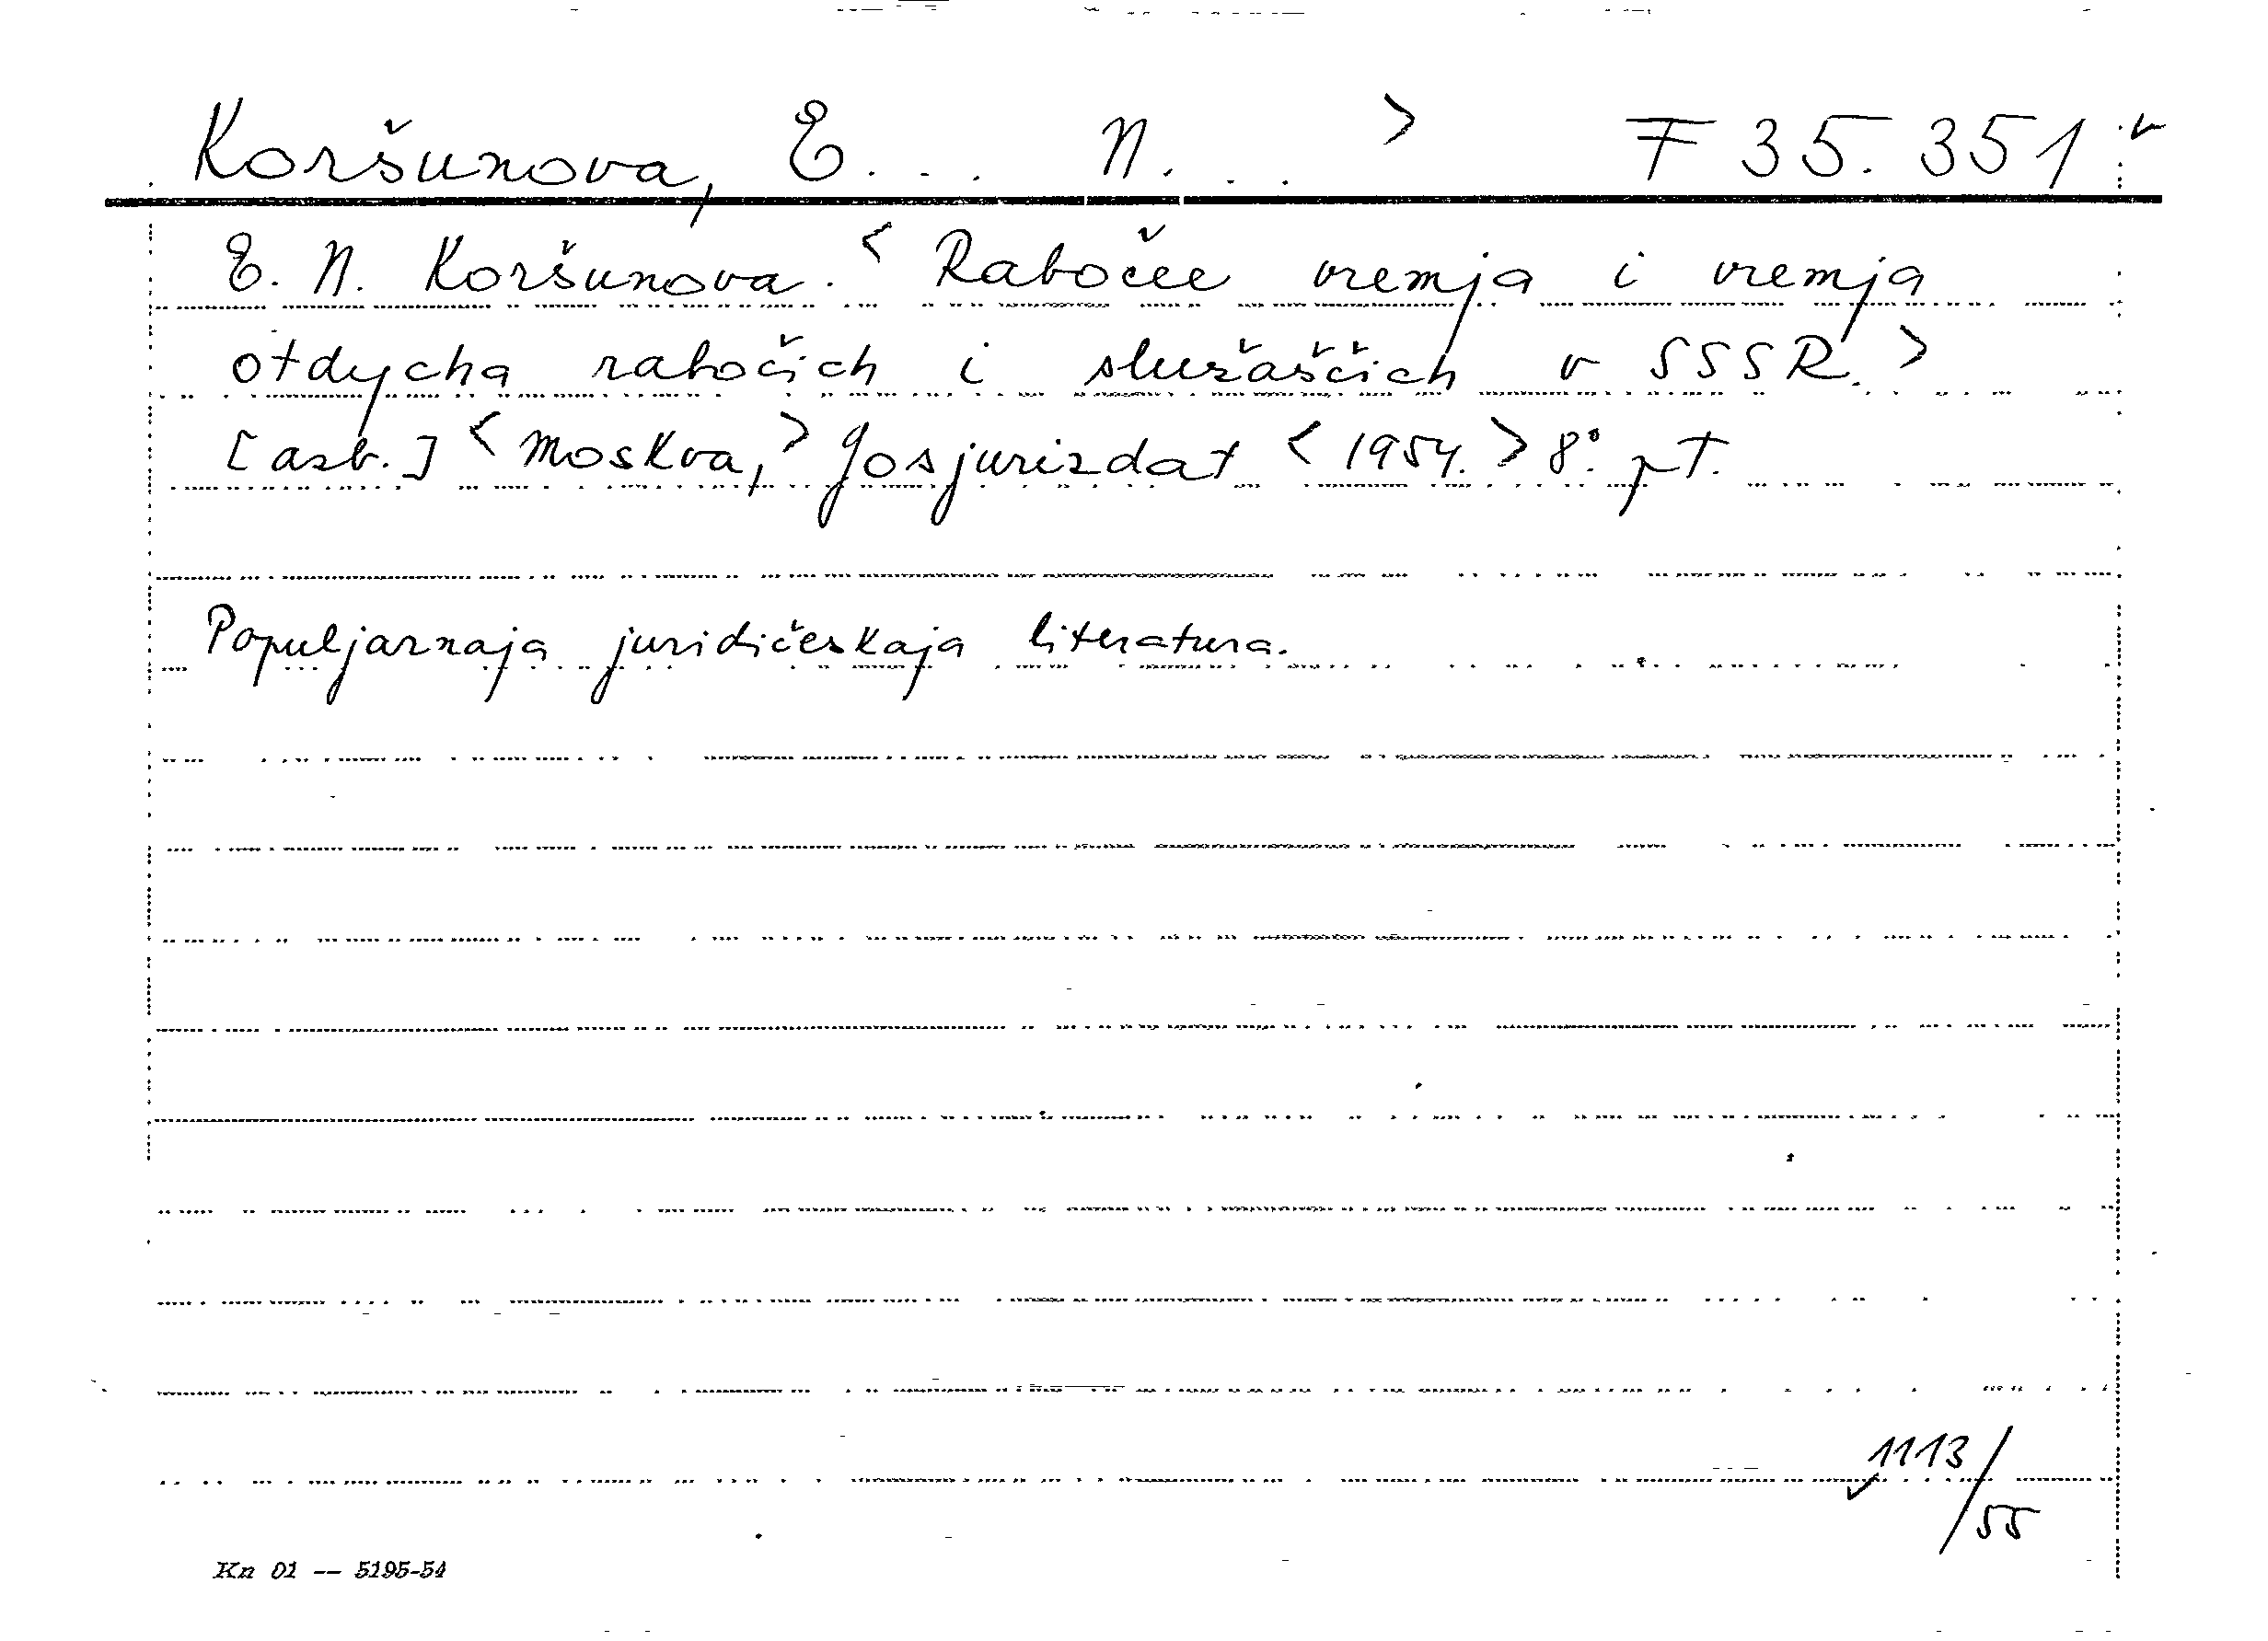 Koršunova, E... N... > F 35.351
E. N. Koršunova. < Rabočee vremja i vremja
otdycha rabočich i služaščich v SSSR. >
[azb.] < Moskva, > Gosjurizdat < 1954. > 8°. pT.
Populjarnaja juridičeskaja literatura.
1113/55
Kn 01 -- 5195-54